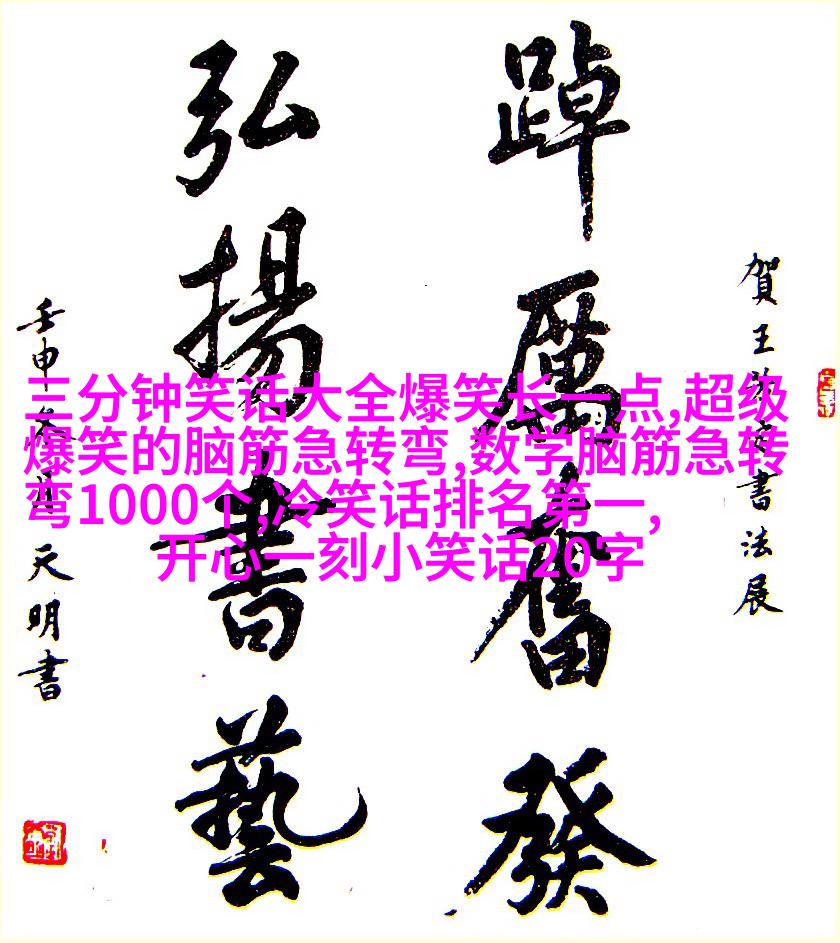 賀王書法展
踔厲奮發
弘揚書藝
壬申天明書
三分钟笑话大全爆笑长一点,超级
爆笑的脑筋急转弯,数学脑筋急转
弯1000个,冷笑话排名第一,
开心一刻小笑话20字